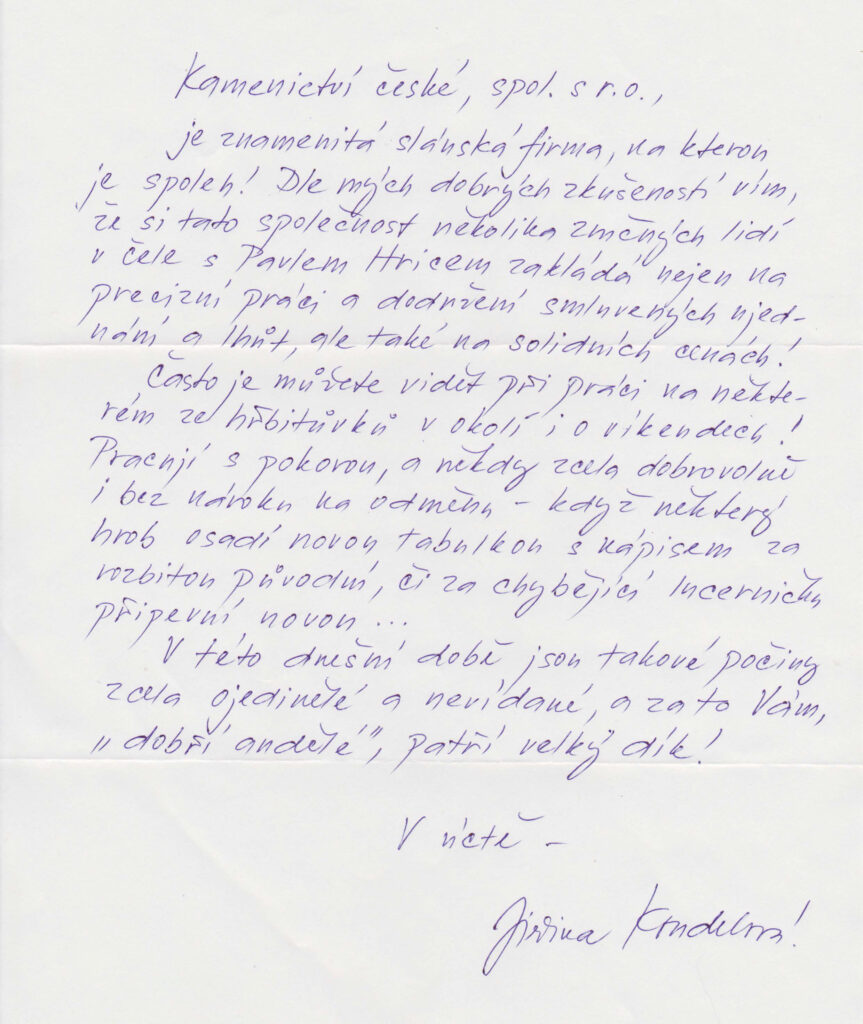 Kamenictví české, spol. s r.o.,
je znamenitá slánská firma, na kterou
je spoleh! Dle mých dobrých zkušeností vím,
že si tato společnost několika zručných lidí
v čele s Pavlem Hricem zakládá nejen na
precizní práci a dodržení smluvených ujed-
nání a lhůt, ale také na solidních cenách!
Často je můžete vidět při práci na někte-
rém ze hřbitůvků v okolí i o víkendech!
Pracují s pokorou, a někdy zcela dobrovolně
i bez nároku na odměnu - když některý
hrob osadí novou tabulkou s nápisem za
rozbitou původní, či za chybějící lucerničku
připevní novou ...
V této dnešní době jsou takové počiny
zcela ojedinělé a nevídané, a za to Vám,
„dobří andělé", patří velký dík!
V úctě -
Jiřina